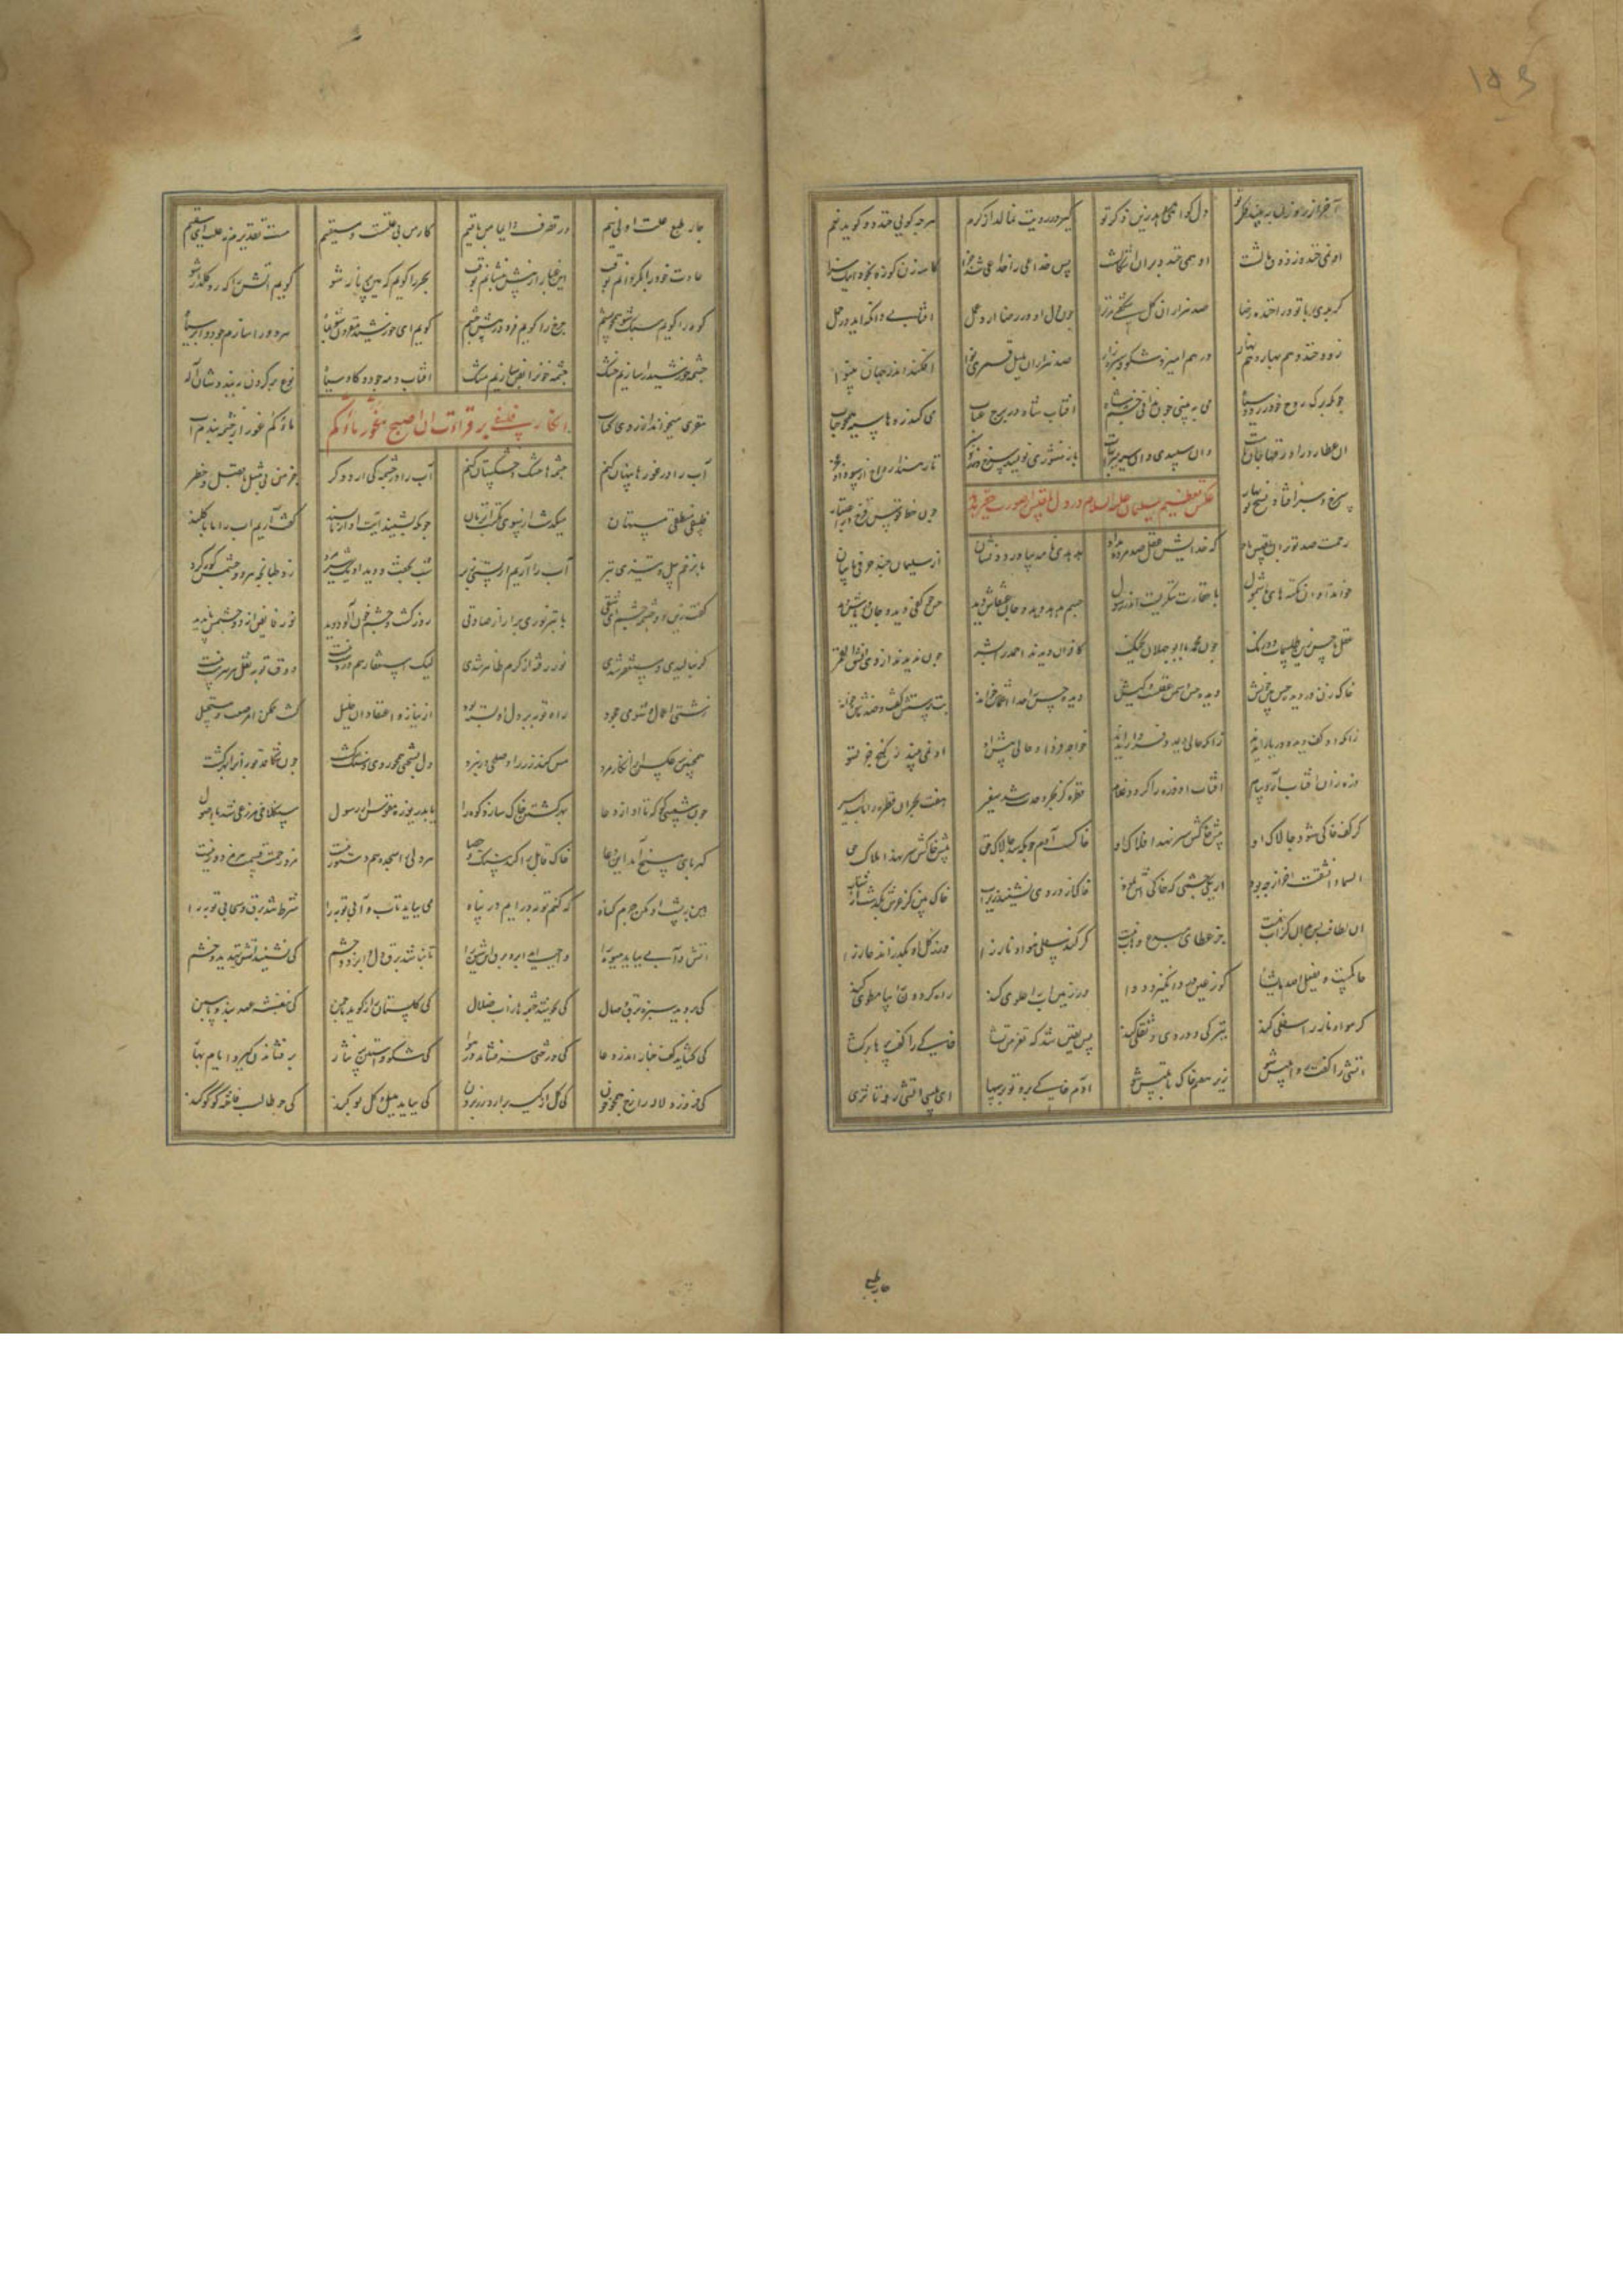 آخر از روزن ببیند فکر تو دل گواهی دهد زین ذکر تو گیر در رویت نمالد از کرم هرچه گویی خندد و گوید نعم
او نمی خندد ز ذوق مالشت او همی خندد بر آن اسگالشت پس خداعی را خداعی شد جزا کاسه زن کوزه بخور اینک سزا
گر بدی با تو ورا خنده رضا صد هزاران گل شکفتی مر ترا چون دل او در رضا آرد عمل آفتابی دان که آید در حمل
زو بخندد هم بهار و هم نهار در هم آمیزد شکوفه و سبزه زار صد هزاران بلبل و قمری نوا افکنند اندر جهان بی نوا
چونکه برگ روح خود زرد و سیاه می ببینی چون ندانی خشم شاه آفتاب شاه در برج عتاب می کند روها سیه همچون کباب
آن عطارد را ورقها جان ماست وان سپیدی وان سیه میزان ماست باز منشوری نویسد سرخ و سبز تا رهند ارواح از سودا و عجز
سرخ و سبز افتاد نسخ نوبهار چون خط قوس و قزح در اعتبار
عکس تعظیم سلیمان علیه السلام در دل بلقیس از صورت حقیر هدهد
رحمت صد تو بر آن بلقیس باد که خدایش عقل صد مرده بداد هدهدی نامه بیاورد و نشان از سلیمان چند حرفی با بیان
خواند او آن نکته های با شمول با حقارت ننگریست اندر رسول جسم هدهد دید و جان عنقاش دید حس چو کفی دید و جان دریاش دید
عقل با حس زین طلسمات دو رنگ چون محمد با ابوجهلان بجنگ کافران دیدند احمد را بشر چون ندیدند از وی انشق القمر
خاک زن در دیده حس بین خویش دیده حس دشمن عقلست و کیش دیده حس را خدا اعماش خواند بت پرستش گفت و ضد ماش خواند
زانکه او کف دید و دریا را ندید زانکه حالی دید و فردا را ندید خواجه فردا و حالی پیش او او نمی بیند ز گنج جز تسو
ذره زان آفتاب آرد پیام آفتاب آن ذره را گردد غلام قطره کز بحر وحدت شد سفیر هفت بحر آن قطره را باشد اسیر
گر کف خاکی شود چالاک او پیش خاکش سر نهد افلاک او خاک آدم چونکه شد چالاک حق پیش خاکش سر نهند املاک حق
السماء انشقت آخر از چه بود از یکی چشمی که خاکی خاک از دردی نشیند زیر آب خاک بین کز عرش بگذشت از شتاب
آن لطافت پس بدان کز آب نیست جز عطای مبدع وهاب نیست گر کند سفلی هوا و نار را ور ز گل او بگذراند خار را
حاکمست و یفعل الله ما یشا کو ز عین درد انگیزد دوا ور زمین و آب را علوی کند راه گردون را بپا مطوی کند
گر هوا و نار را سفلی کند تیرگی و دردی و ثقلی کند پس یقین شد که تعز من تشا خاکیی را گفت پرها برگشا
آتشی را گفت رو ابلیس شو زیر هفتم خاک با تلبیس شو آدم خاکی برو تو بر سها ای بلیس آتشی رو تا ثری
چار طبع
چار طبع و علت اولی نیم در تصرف دایما من باقیم کار من بی علتست و مستقیم هست تقدیرم نه علت ای سقیم
عادت خود را بگردانم بوقت این غبار از پیش بنشانم بوقت بحر را گویم که هین پر نار شو گویم آتش را که رو گلزار شو
کوه را گویم سبک شو همچو پشم چرخ را گویم فرو در پیش چشم گویم ای خورشید مقرون شو بماه هر دو را سازم چو دو ابر سیاه
چشمه خورشید را سازیم خشک چشمه خون را بفن سازیم مشک آفتاب و مه چو دو گاو سیاه یوغ بر گردن ببنددشان اله
مقری میخواند از روی کتاب ماؤکم غورا ز چشمه بندم آب
انکار فلسفی بر قرائت ان اصبح ماؤکم غورا
آب را در غورها پنهان کنم چشمه ها خشک و خشکستان کنم آب را در چشمه کی آرد دگر جز من بی مثل با فضل و خطر
فلسفی منطقی مستهان میگذشت از سوی مکتب آن زمان چونکه بشنید آیت او از ناپسند گفت آریم آب را ما با کلند
ما بزخم بیل و تیزی تبر آب را آریم از پستی زبر شب بخفت و دید او یک شیر مرد زد طبانجه هر دو چشمش کور کرد
گفت زین دو چشمه چشم ای شقی با تبر نوری برآر ار صادقی روز گشت و دو چشم کور دید نور فایض از دو چشمش ناپدید
گر بنالیدی و مستغفر شدی نور رفته از کرم ظاهر شدی لیک استغفار هم در دست نیست ذوق توبه نقل هر سرمست نیست
زشتی اعمال و شومی جحود راه توبه بر دل او بسته بود از نیاز و اعتقاد آن خلیل گشت ممکن امر صعب و مستحیل
همچنین عکس آن انکار مرد مس کند زر را و صلحی را نبرد دل بسختی همچو روی سنگ گشت چون شکافد توبه آنرا بهر کشت
چون شعیبی کو که تا او از دعا بهر کشتن خاک سازد کوه را یا بدریوزه مقوقس از رسول سنگلاخی مزرعی شد با اصول
کهربای مسخ آمد این دغا خاک قابل را کند سنگ و حصا هر دلی را سجده هم دستور نیست مزد رحمت قسم هر مزدور نیست
هین بپشت آن مکن جرم و گناه که کنم توبه در آیم در پناه می بباید تاب و آبی توبه را شرط شد برق و سحابی توبه را
آتش و آبی بباید میوه را واجب آید ابر و برق این شیوه را تا نباشد برق دل و ابر دو چشم کی نشیند آتش تهدید و خشم
کی بروید سبزه ذوق وصال کی بجوشد چشمه ها ز آب زلال کی گلستان راز گوید با چمن کی بنفشه عهد بندد با سمن
کی گشاید کف چنار اندر دعا کی درختی سر فشاند در هوا کی شکوفه آستین پر نثار بر فشاندن گیرد ایام بهار
کی فروزد لاله را رخ همچو خون کی گل از کیسه برآرد زر برون کی بیاید بلبل و گل بو کند کی چو طالب فاخته کوکو کند